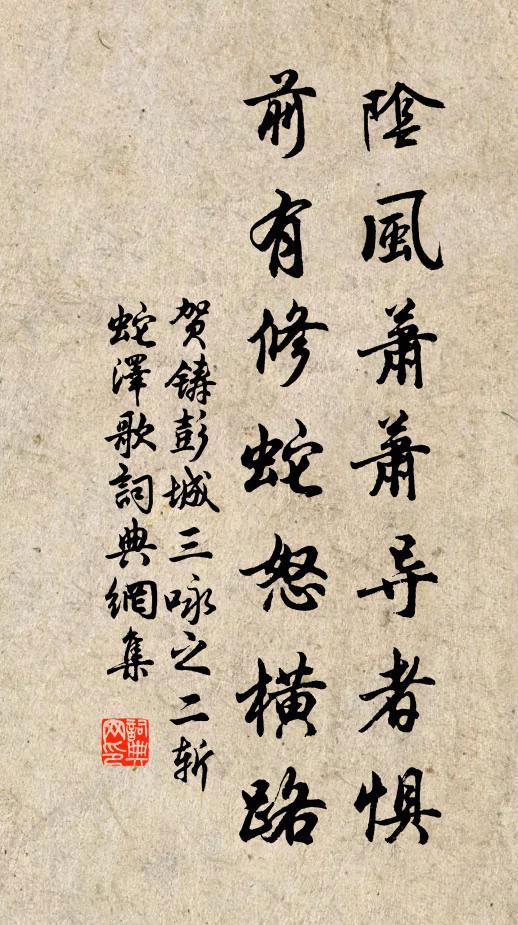 陰風蕭蕭导者惧
前有修蛇怒横路
贺铸彭城三咏之二斩
蛇澤歌詞典網集
詞典
网印